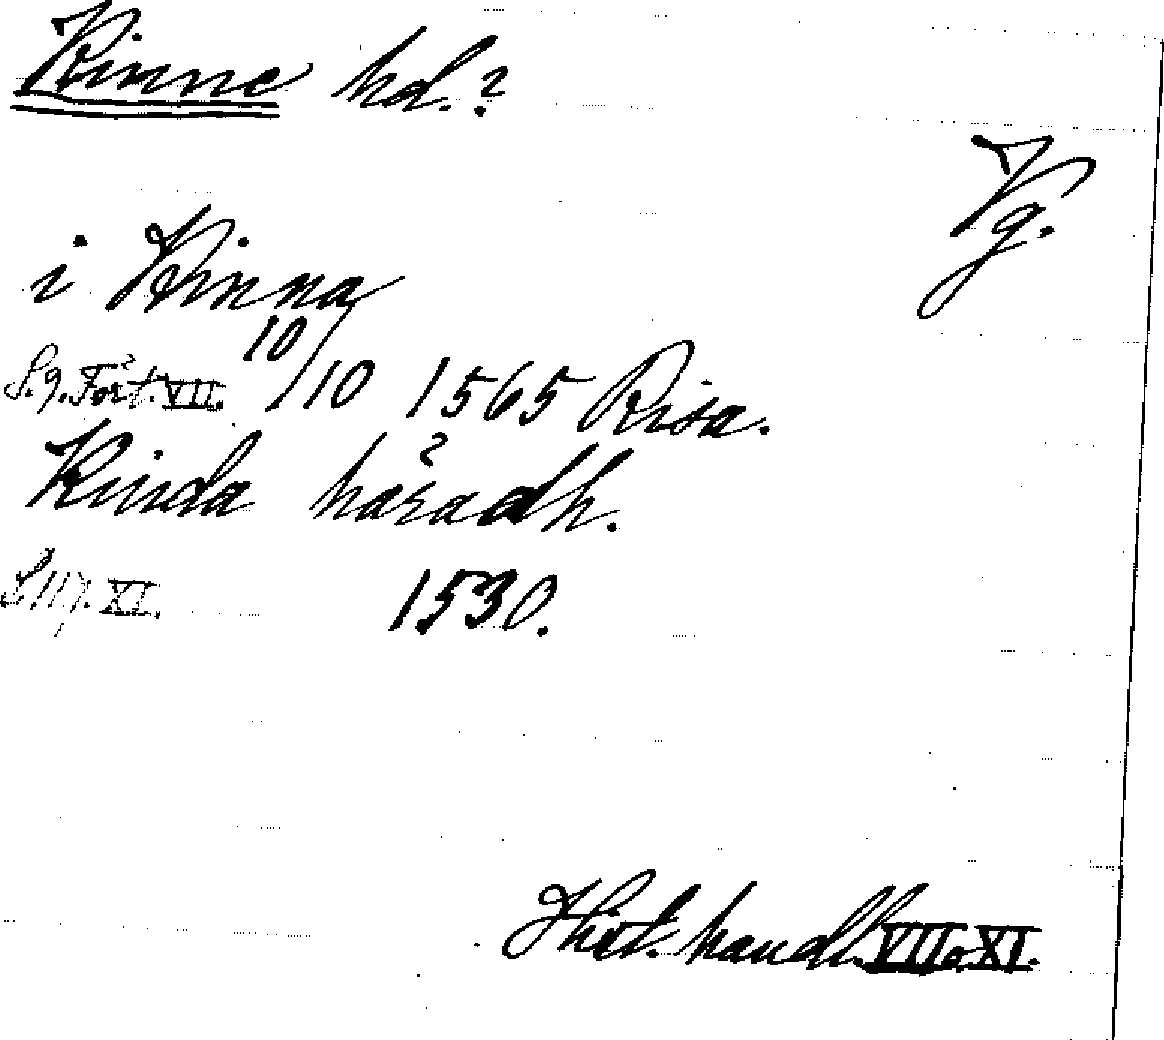 Kinne hd.?
Vg.
i Kinna
S. 9. Fört. VII. 10/10 1565 Risa.
Kinda häradh.
S 117. XI. 1530.
Hist. handl. VII o XI.